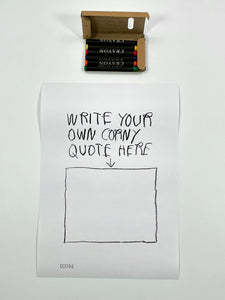 CRAYON
CRAYON
CRAYON
WRITE YOUR
OWN CORNY
QUOTE HERE
00066